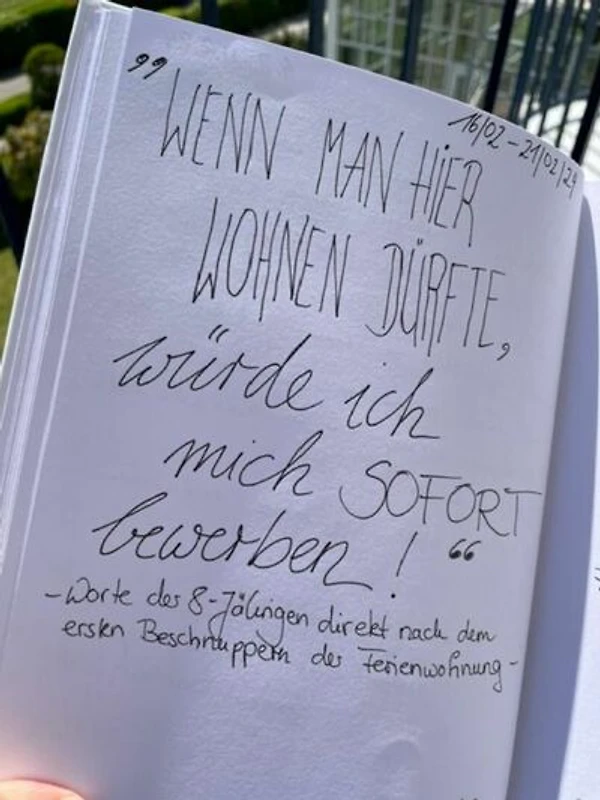 16/02 – 21/02/24
„WENN MAN HIER
WOHNEN DÜRFTE,
würde ich
mich SOFORT
bewerben!“
-Worte des 8-Jährigen direkt nach dem
ersten Beschnuppern der Ferienwohnung-